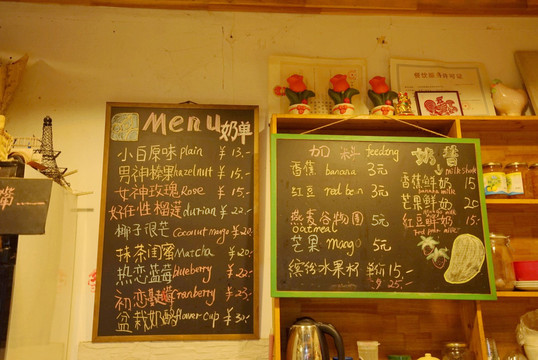 Menu 奶单
小白原味 plain ¥ 13.-
男神榛果 hazelnut ¥ 15.-
女神玫瑰 Rose ¥ 15.-
好任性榴莲 durian ¥ 22.-
椰子很芒 Coconut mango ¥ 20.-
抹茶闺蜜 Matcha ¥ 20.-
热恋蓝莓 blueberry ¥ 22.-
初恋蔓越莓 cranberry ¥ 23.-
盆栽奶酪 flaver cup ¥
加料 feeding
香蕉 banana 3元
红豆 red bean 3元
燕麦谷物圈 5元
oatmeal
芒果 Mango 5元
缤纷水果杯 15.-
25.-
奶昔
milkshake
香蕉鲜奶 15
banana milk
芒果鲜奶 20
红豆鲜奶 15